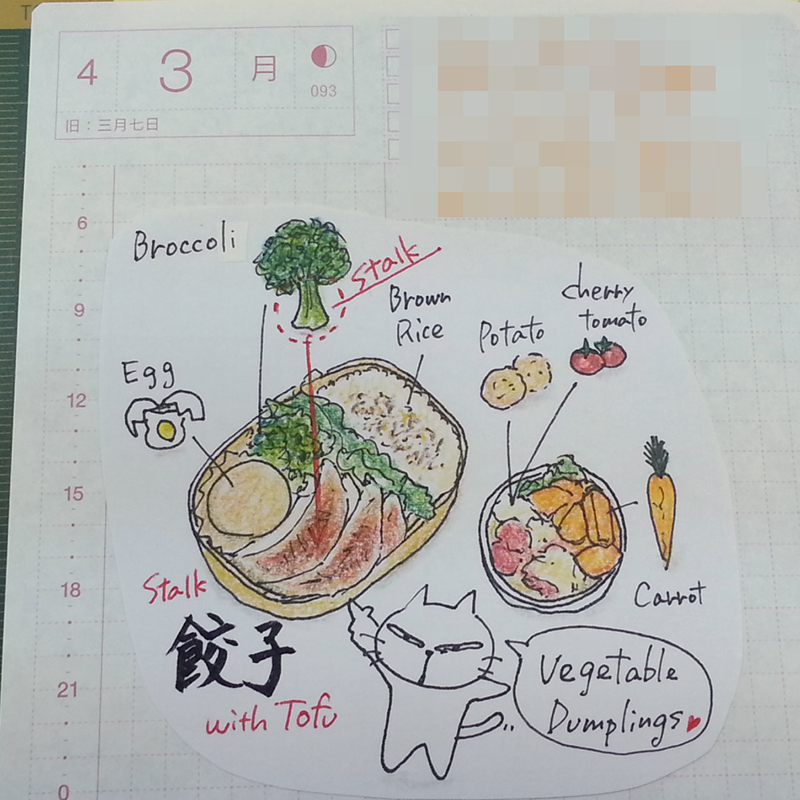 4 3 月
093
旧：三月七日
6
9
12
15
18
21
0
Broccoli
Stalk
Brown
Rice
Potato
cherry
tomato
Egg
Carrot
Stalk
餃子
with Tofu
Vegetable
Dumplings